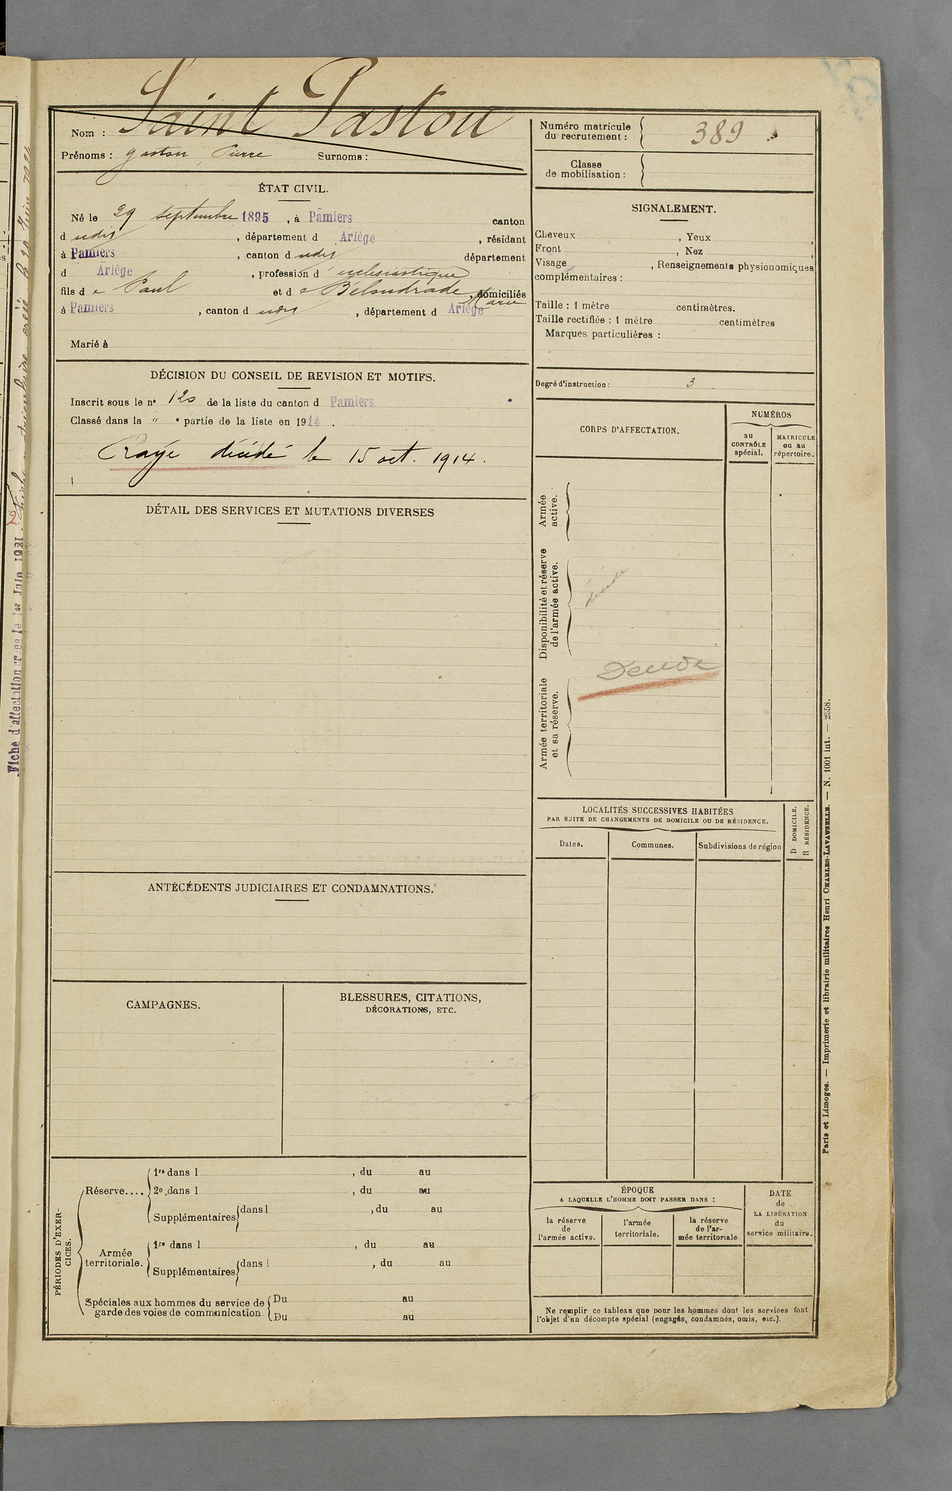 Nom : Saint Pastou
Prénoms : Gaston Pierre Surnoms :
ÉTAT CIVIL.
Né le 29 septembre 1895, à Pamiers canton
d udis, département d Ariège, résidant
à Pamiers, canton d udis département
d Ariège, profession d' ecclésiastique
fils de Paul et de Bélondrade Marie, domiciliés
à Pamiers, canton d udis, département d Ariège
Marié à
DÉCISION DU CONSEIL DE REVISION ET MOTIFS.
Inscrit sous le n° 120 de la liste du canton d Pamiers
Classé dans la " e partie de la liste en 1914.
Rayé décédé le 15 oct. 1914.
DÉTAIL DES SERVICES ET MUTATIONS DIVERSES
ANTÉCÉDENTS JUDICIAIRES ET CONDAMNATIONS.
CAMPAGNES.
BLESSURES, CITATIONS,
DÉCORATIONS, ETC.
PÉRIODES D'EXER-
CICES.
Réserve....
1re dans l , du au
2e dans l , du au
Supplémentaires dans l , du au
au
Armée
territoriale.
1re dans l , du au
Supplémentaires dans l , du au
Spéciales aux hommes du service de
garde des voies de communication.
Du au
Du au
Numéro matricule
du recrutement : 389
Classe
de mobilisation :
SIGNALEMENT.
Cheveux , Yeux ,
Front , Nez
Visage , Renseignements physionomiques
complémentaires :
Taille : 1 mètre centimètres.
Taille rectifiée : 1 mètre centimètres
Marques particulières :
Degré d'instruction : 3
CORPS D'AFFECTATION.
NUMÉROS
au
CONTRÔLE
spécial.
MATRICULE
ou au
répertoire.
Armée
active.
Disponibilité et réserve
de l'armée active.
décédé
Décédé
Armée territoriale
et sa réserve.
LOCALITÉS SUCCESSIVES HABITÉES
PAR SUITE DE CHANGEMENTS DE DOMICILE OU DE RÉSIDENCE.
D DOMICILE.
R RÉSIDENCE.
Dates. Communes. Subdivisions de région
ÉPOQUE
A LAQUELLE L'HOMME DOIT PASSER DANS :
la réserve
de
l'armée active.
l'armée
territoriale.
la réserve
de l'ar-
mée territoriale
DATE
de
LA LIBÉRATION
du
service militaire.
Ne remplir ce tableau que pour les hommes dont les services font
l'objet d'un décompte spécial (engagés, condamnés, omis, etc.).
Paris et Limoges. — Imprimerie et librairie militaires Henri CHARLES-LAVAUZELLE. — N. 1001 int. — 2558.
Fiche d'affectation créée le 1er Juin 1921